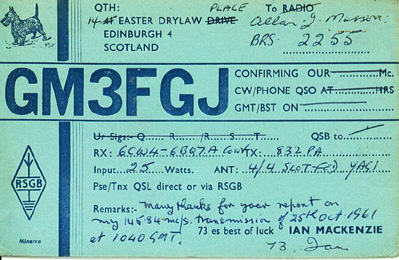 QTH: PLACE To RADIO
14 EASTER DRYLAW DRIVE Allan J. Masson.
EDINBURGH 4 BRS 2255
SCOTLAND
GM3FGJ
CONFIRMING OUR Mc.
CW/PHONE QSO AT HRS
GMT/BST ON
Ur Sigs:- Q R /R S T QSB to
RX: 6CW4-6BQ7A Conv TX: 832 PA
Input 25 Watts. ANT: 4/4 SLOT-FED YAGI
Pse/Tnx QSL direct or via RSGB
RSGB
Remarks:- Many thanks for your report on
my 145.84 mc/s. transmission of 25th Oct 1961
at 1040 GMT. 73 es best of luck IAN MACKENZIE
Minerva 73. Ian